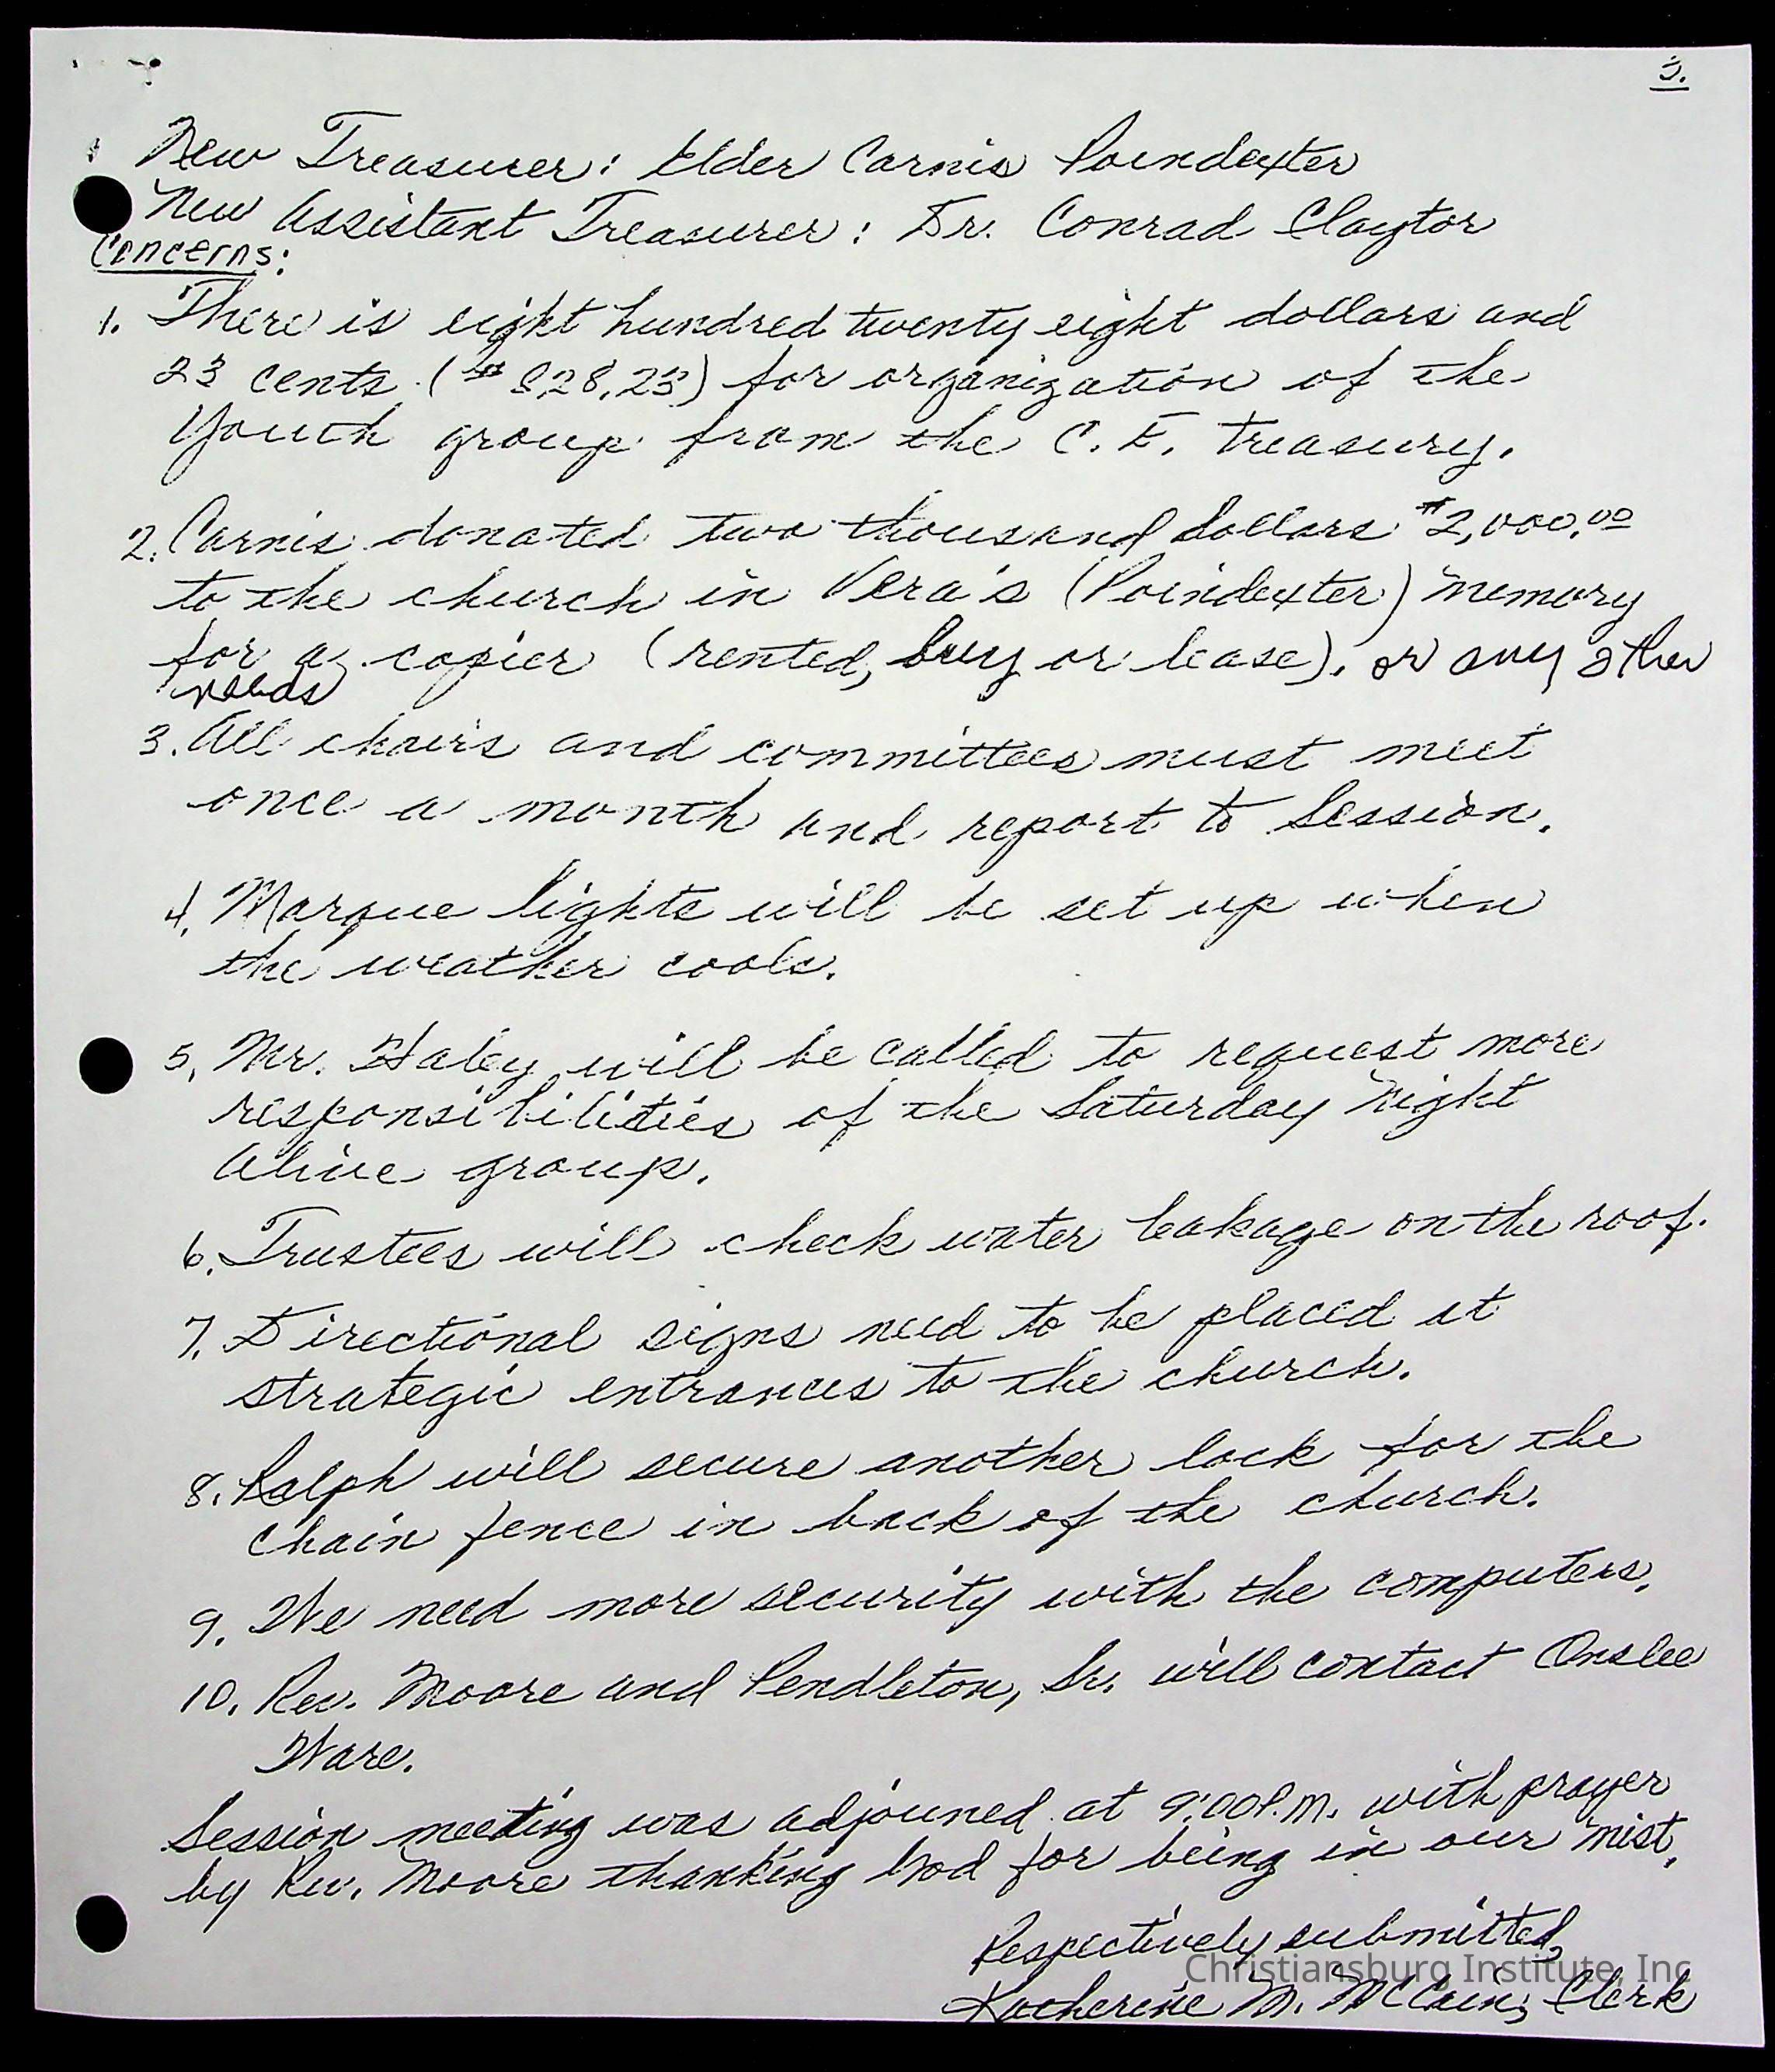 3.
New Treasurer: Elder Carnis Poindexter
New Assistant Treasurer: Dr. Conrad Claytor
Concerns:
1. There is eight hundred twenty eight dollars and
23 cents ($828.23) for organization of the
Youth group from the C. E. Treasury.
2. Carnis donated two thousand dollars $2,000.00
to the church in Vera's (Poindexter) memory
for a copier (rented, buy or lease). or any other
needs
3. All chairs and committees must meet
once a month and report to Session.
4. Marque lights will be set up when
the weather cools.
5. Mr. Haley will be called to request more
responsibilities of the Saturday Night
Alive group.
6. Trustees will check water leakage on the roof.
7. Directional signs need to be placed at
strategic entrances to the church.
8. Ralph will secure another lock for the
chain fence in back of the church.
9. We need more security with the computers.
10. Rev. Moore and Pendleton, Sr. will contact Onslee
Ware.
Session meeting was adjouned at 9:00 P.M. with prayer
by Rev. Moore thanking God for being in our mist.
Respectively submitted,
Christiansburg Institute, Inc
Katherine M. McCain, Clerk